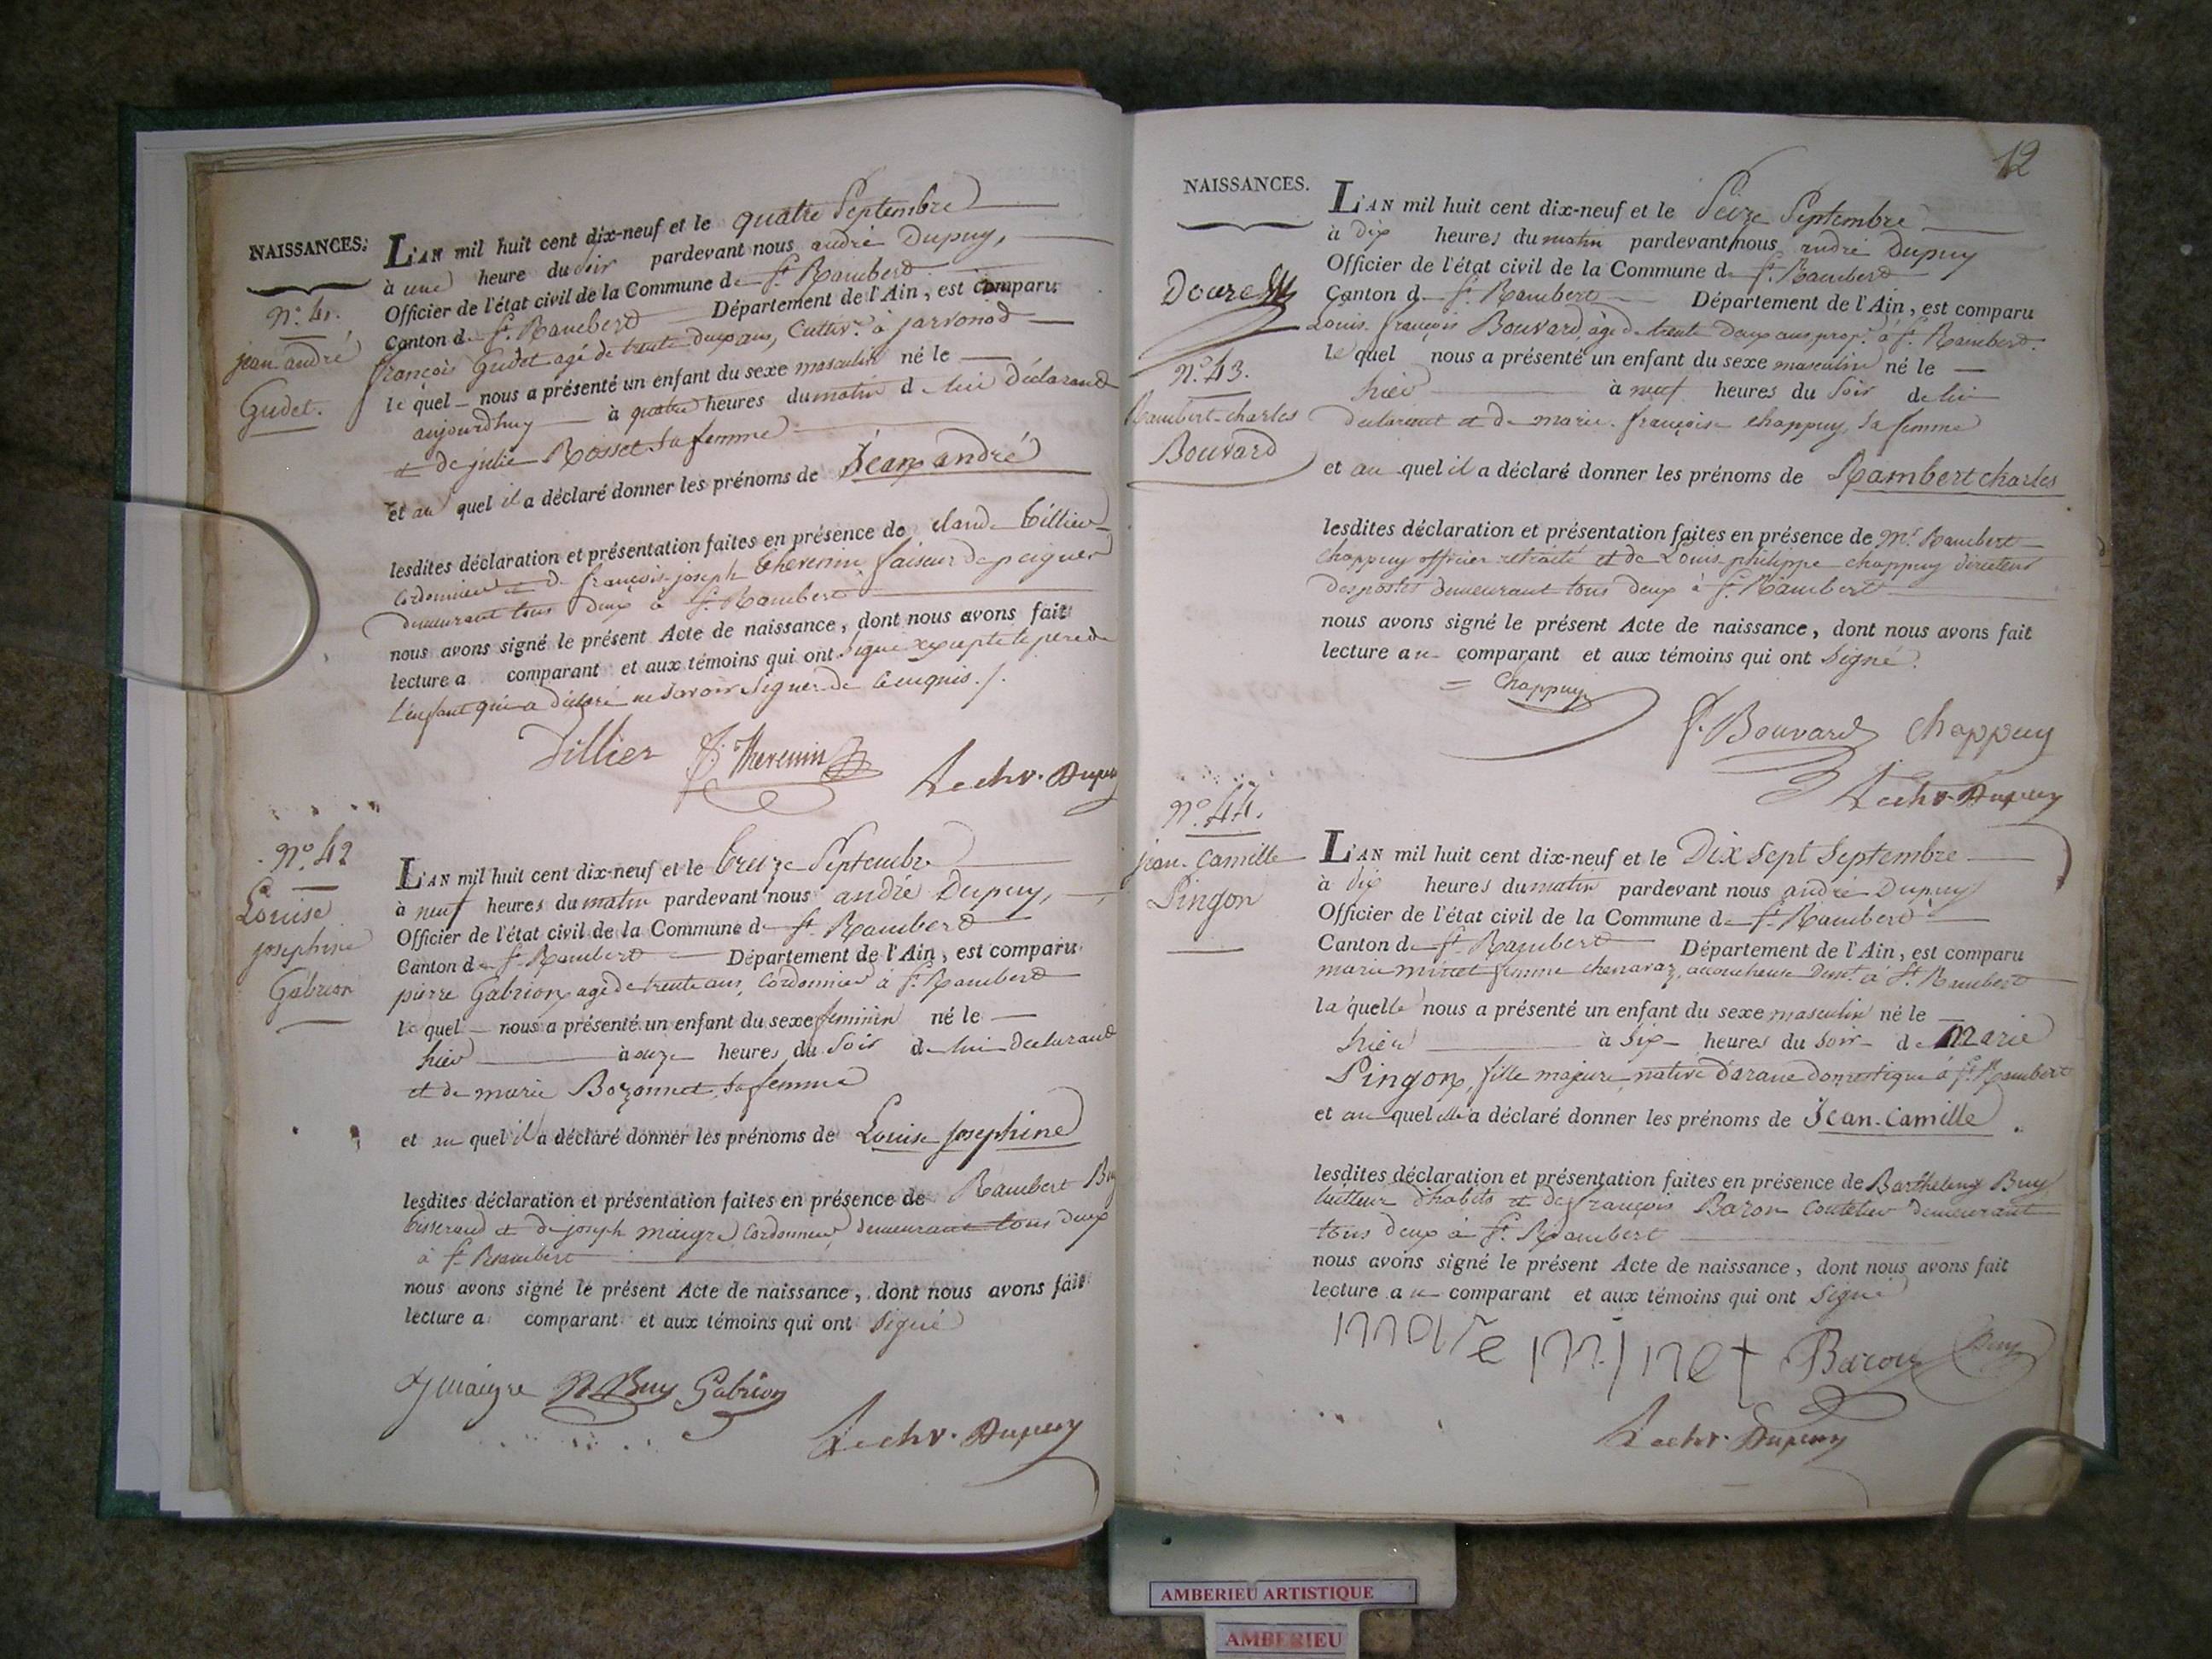 NAISSANCES.
N.º 41.
jean andré
Gudet.
L'AN mil huit cent dix-neuf et le quatre Septembre
à une heure du soir pardevant nous andré Dupuy,
Officier de l'état civil de la Commune de St. Rambert
Canton de St. Rambert Département de l'Ain, est comparu
françois Gudet agé de trente deux ans, Cultivr. à jarvonod
le quel nous a présenté un enfant du sexe masculin né le
aujourdhuy à quatre heures du matin de lui déclarant
et de julie Rosset sa femme
et au quel il a déclaré donner les prénoms de Jean andré
lesdites déclaration et présentation faites en présence de claude Tillier
cordonnier et de françois joseph thevenin faiseur de peignes
demeurant tous deux à St. Rambert
nous avons signé le présent Acte de naissance, dont nous avons fait
lecture a comparant et aux témoins qui ont signé excepté le pere de
l'enfant qui a déclaré ne savoir signer de ce enquis ./.
Tillier Thevenin
Dupuy
N.º 42
Louise
josephine
Gabrion
L'AN mil huit cent dix-neuf et le treize Septembre
à neuf heures du matin pardevant nous andré Dupuy,
Officier de l'état civil de la Commune de St. Rambert
Canton de St. Rambert Département de l'Ain, est comparu
pierre Gabrion agé de trente ans, Cordonnier à St. Rambert
le quel nous a présenté un enfant du sexe feminin né le
hier à onze heures du soir de lui declarant
et de marie Bozonnet sa femme
et au quel il a déclaré donner les prénoms de Louise josephine
lesdites déclaration et présentation faites en présence de Rambert Buy
tisserand et de joseph maigre cordonnier demeurant tous deux
à St. Rambert
nous avons signé le présent Acte de naissance, dont nous avons fait
lecture a comparant et aux témoins qui ont signé
j maigre R Buy Gabrion
Dupuy
12
NAISSANCES.
N.º 43.
Rambert-charles
Bouvard
L'AN mil huit cent dix-neuf et le Seize Septembre
à dix heures du matin pardevant nous andré Dupuy
Officier de l'état civil de la Commune de St. Rambert
Canton de St. Rambert Département de l'Ain, est comparu
Louis françois Bouvard, âgé de trente Deux ans propre. à St. Rambert.
le quel nous a présenté un enfant du sexe masculin né le
hier à neuf heures du Soir de lui
declarant et de marie françoise chappuy sa femme
et au quel il a déclaré donner les prénoms de Rambert charles
lesdites déclaration et présentation faites en présence de Mr. Rambert
chappuy officier retraité et de Louis philippe chappuy directeur
des postes demeurant tous deux à St. Rambert
nous avons signé le présent Acte de naissance, dont nous avons fait
lecture au comparant et aux témoins qui ont signé.
Chappuy
Bouvard Chappuy
Dupuy
N.º 44.
jean-camille
Pingon
L'AN mil huit cent dix-neuf et le Dix Sept Septembre
à dix heures du matin pardevant nous andré Dupuy
Officier de l'état civil de la Commune de St. Rambert
Canton de St. Rambert Département de l'Ain, est comparu
marie minet femme chenavaz, accoucheuse Demt. à St. Rambert
la quelle nous a présenté un enfant du sexe masculin né le
hier à Six heures du Soir de Marie
Pingon, fille majeure native d'arane domestique à St. Rambert
et au quel elle a déclaré donner les prénoms de Jean-Camille
lesdites déclaration et présentation faites en présence de Barthelemy Buy
tailleur d'habits et de françois Baron Coutelier demeurant
tous deux à St. Rambert
nous avons signé le présent Acte de naissance, dont nous avons fait
lecture au comparant et aux témoins qui ont signé
mare minet Baron Buy
Dupuy
AMBERIEU ARTISTIQUE
AMBERIEU